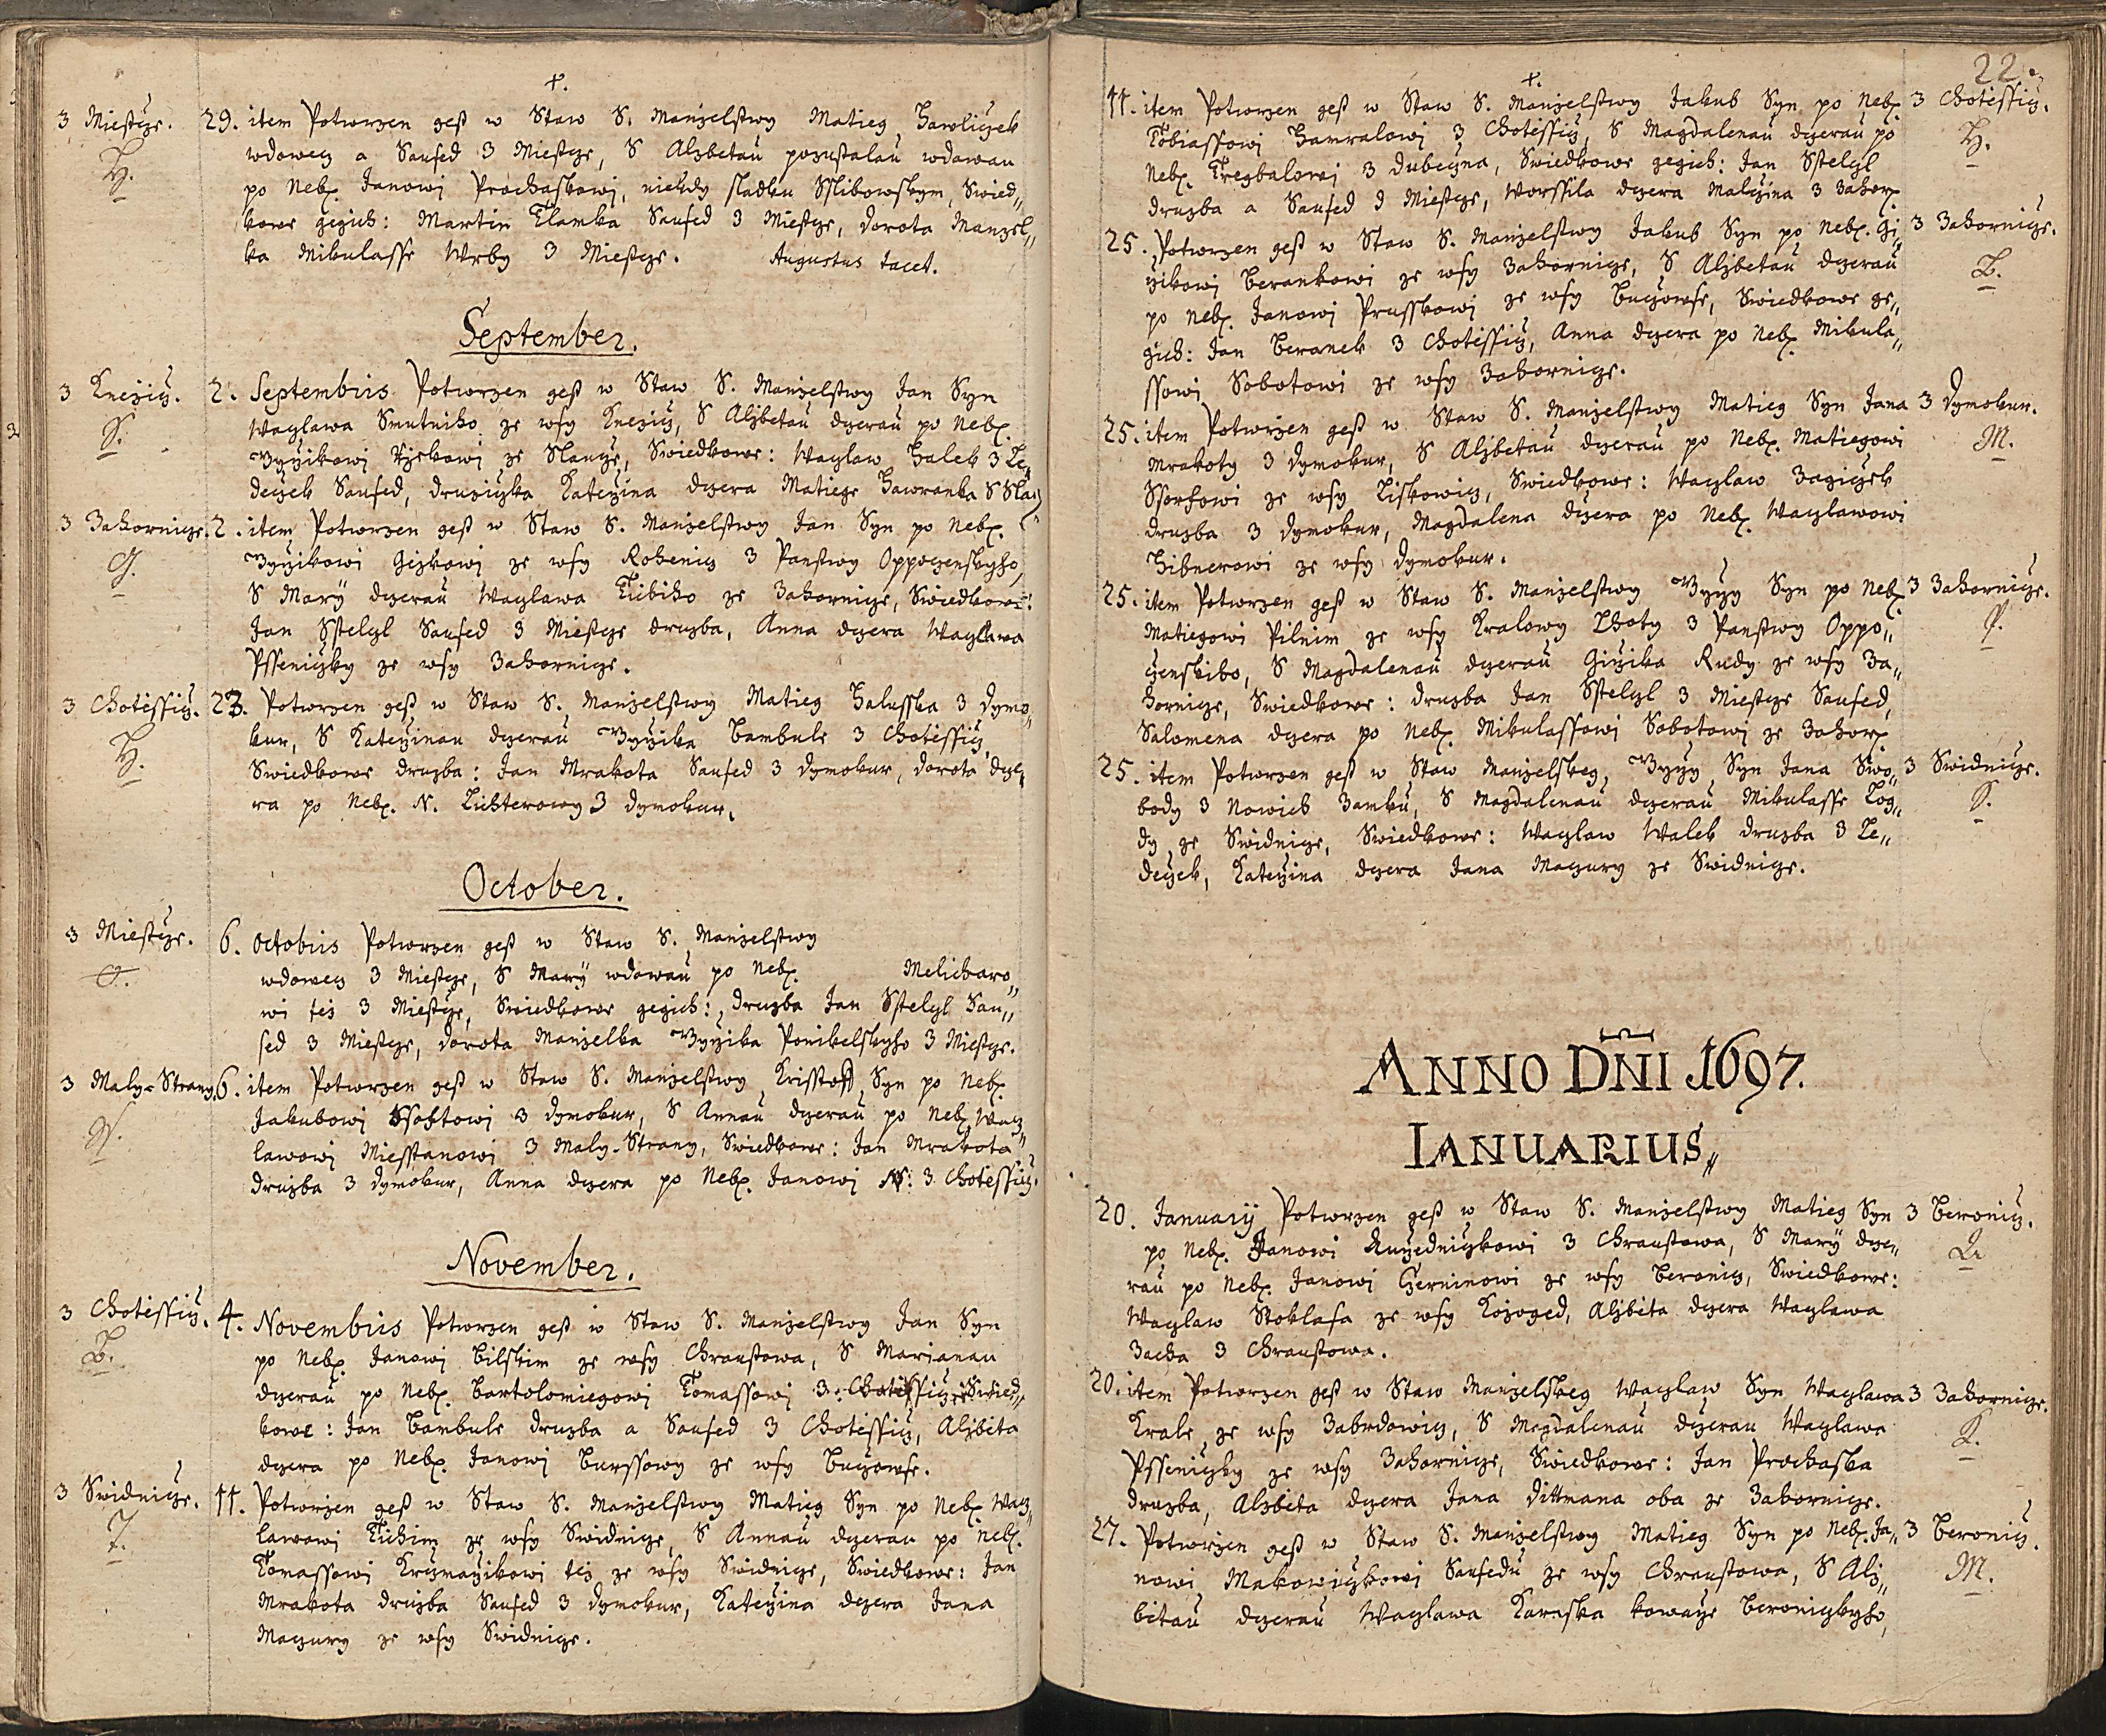 +.
3 Miestcze. 29. item Potwrzen gest w Staw S. Manzelstwy Matieg Hawliczek
H. wdowecz a Saused 3 Miestcze, S Alzbetau pozustalau wdowau
po Nebz. Janowj Prochaskowj, niekdy sladku Sslibowskym, Swied„
kowe gegich: Martin Slamka Saused 3 Miestcze, Dorota Manzel„
ka Mikulasse Wrby 3 Miestcze. Augustus tacet.
September.
3 Knezicz. 2. Septembris Potwrzen gest w Staw S. Manzelstwy Jan Syn
S. Waczlawa Smutniho ze wsy Knezicz, S Alzbetau dczerau po Nebz.
Gyrzikowj ze Slaucze, Swiedkowe: Waczlaw Halek 3 Le„
deczek Saused, druziczka Katerzina dczera Matiege Hawranka S Slau
3 Zahornicze. 2. item Potwrzen gest w Staw S. Manzelstwy Jan Syn po Nebz.
G. Gyrzikowi Gezkowj ze wsy Rohenicz 3 Panstwy Oppoczenskyho,
S Marÿ dczerau Waczlawa Tubiho ze Zahornicze, Swiedkowe:
Jan Sstelczl Saused 3 Miestcze druzba, Anna dczera Waczlawa
Psseniczky ze wsy Zahornicze.
3 Chotessicz. 23. Potwrzen gest w Staw S. Manzelstwy Matieg Halusska 3 Dymo„
H. kur, S Katerzinau dczerau Gyrzika Bambule 3 Chotessicz,
Swiedkowe druzba: Jan Mrakota Saused 3 Dymokur, Dorota dcze„
ra po Nebz. N. Lichterowy 3 Dymokur.
October.
3 Miestcze. 6. Octobris Potwrzen gest w Staw S. Manzelstwy
O. wdowecz 3 Miestcze, S Marÿ wdowau po Nebz. Melicharo„
wi tez 3 Miestcze, Swiedkowe gegich: druzba Jan Sstelczl Sau„
sed 3 Miestcze, Dorota Manzelka Gyrzika Ponikelskyho 3 Miestcze.
3 Maly-Strany. 6. item Potwrzen gest w Staw S. Manzelstwy Krisstoff Syn po Nebz.
Jakubowj Ssoltowi 3 Dymokur, S Annau dczerau po Nebz. Wacz„
lawowj Miesstanowi 3 Maly-Strany, Swiedkowe: Jan Mrakota
druzba 3 Dymokur, Anna dczera po Nebz. Janowj N: 3 Chotessicz.
November.
3 Chotessicz. 4. Novembris Potwrzen gest w Staw S. Manzelstwy Jan Syn
B. po Nebz. Janowj Bilskim ze wsy Chraustowa, S Marianau
dczerau po Nebz. Bartolomiegowj Tomassowi 3 Chotessicz, Swied„
kowe: Jan Bambule druzba a Saused 3 Chotessicz, Alzbeta
dczera po Nebz. Janowj Burssowy ze wsy Buczowse.
3 Swidnicze. 11. Potwrzen gest w Staw S. Manzelstwy Matieg Syn po Nebz. Wacz„
T. lawowi Tichim ze wsy Swidnicze, S Annau dczerau po Nebz.
Tomassowi Krczmarzikowi tez ze wsy Swidnicze, Swiedkowe: Jan
Mrakota druzba Saused 3 Dymokur, Katerzina dczera Jana
Maczury ze wsy Swidnicze.
22.
+.
11. item Potwrzen gest w Staw S. Manzelstwy Jakub Syn po Nebz. 3 Chotessicz.
Tobiassowi Hamralowj 3 Chotessicz, S Magdalenau dczerau po H.
Nebz. Tregbalowi 3 Dubeczna, Swiedkowe gegich: Jan Sstelczl
druzba a Saused 3 Miestcze, Worssila dczera Malczina 3 Zahorz.
25. Potwrzen gest w Staw S. Manzelstwy Jakub Syn po Nebz. Gi„ 3 Zahornicze.
rzikowj Berankowi ze wsy Zahornicze, S Alzbetau dczerau B.
po Nebz. Janowj Prusskowj ze wsy Buczowse, Swiedkowe ge„
gich: Jan Beranek 3 Chotessicz, Anna dczera po Nebz. Mikula„
ssowi Sobotowi ze wsy Zahornicze.
25. item Potwrzen gest w Staw S. Manzelstwy Matieg Syn Jana 3 Dymokur.
Mrakoty 3 Dymokur, S Alzbetau dczerau po Nebz. Matiegowi M.
Ssorfowi ze wsy Liskowicz, Swiedkowe: Waczlaw Zagiczek
druzba 3 Dymokur, Magdalena dczera po Nebz. Waczlawowi
Hibnerowi ze wsy Dymokur.
25. item Potwrzen gest w Staw S. Manzelstwy Gyrzy Syn po Nebz. 3 Zahornicze.
Matiegowi Pilnim ze wsy Kralowy Lhoty 3 Panstwy Oppo„ P.
czenskiho, S Magdalenau dczerau Girzika Rudy ze wsy Za„
hornicze, Swiedkowe: druzba Jan Sstelczl 3 Miestcze Saused,
Salomena dczera po Nebz. Mikulassowi Sobotowj ze Zahorz.
25. item Potwrzen gest w Staw Manzelskeg, Gyrzy Syn Jana Swo„ 3 Swidnicze.
body 3 Nowich Zamku, S Magdalenau dczerau Mikulasse Log„ S.
dy ze Swidnicze, Swiedkowe: Waczlaw Walek druzba 3 Le„
deczek, Katerzina dczera Jana Maczury ze Swidnicze.
ANNO DNI 1697.
IANUARIUS„
20. Januarÿ Potwrzen gest w Staw S. Manzelstwy Matieg Syn 3 Beronicz.
po Nebz. Janowi Ruzedniczkowi 3 Chraustowa, S Marÿ dcze„
rau po Nebz. Janowj Czerninowi ze wsy Beronicz, Swiedkowe:
Waczlaw Stoklasa ze wsy Kozoged, Alzbeta dczera Waczlawa
Zacha 3 Chraustowa.
20. item Potwrzen gest w Staw Manzelskeg Waczlaw Syn Waczlawa 3 Zahornicze.
Krale ze wsy Zabrdowicz, S Magdalenau dczerau Waczlawa K.
Psseniczky ze wsy Zahornicze, Swiedkowe: Jan Prochaska
druzba, Alzbeta dczera Jana Dittmana oba ze Zahornicze.
27. Potwrzen gest w Staw S. Manzelstwy Matieg Syn po Nebz. Ja„ 3 Beronicz.
nowi Makowiczkowi Sausedu ze wsy Chraustowa, S Alz„ M.
bitau dczerau Waczlawa Karaska kowarze Beroniczkyho,